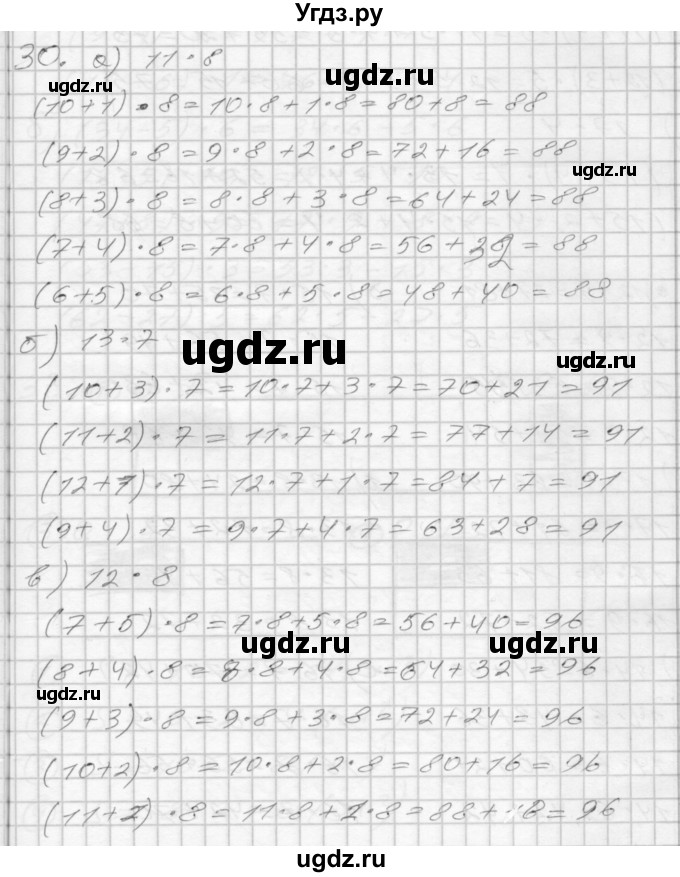 Угдз.ру
30. а) 11 · 8
ugdz.ru
(10+1) · 8 = 10·8+1·8 = 80+8 = 88
(9+2) · 8 = 9·8+2·8 = 72+16 = 88
ugdz.ru
(8+3) · 8 = 8·8+3·8 = 64+24 = 88
(7+4) · 8 = 7·8+4·8 = 56+32 = 88
(6+5) · 8 = 6·8+5·8 = 48+40 = 88
б) 13·7
ugdz.ru
ugdz.ru
(10+3) · 7 = 10·7+3·7 = 70+21 = 91
(11+2) · 7 = 11·7+2·7 = 77+14 = 91
(12+1) · 7 = 12·7+1·7 = 84+7 = 91
(9+4) · 7 = 9·7+4·7 = 63+28 = 91
в) 12 · 8
(7+5) · 8 = 7·8+5·8 = 56+40 = 96
ugdz.ru
ugdz.ru
(8+4) · 8 = 8·8+4·8 = 64+32 = 96
ugdz.ru
(9+3) · 8 = 9·8+3·8 = 72+24 = 96
(10+2) · 8 = 10·8+2·8 = 80+16 = 96
(11+1) · 8 = 11·8+1·8 = 88+8 = 96
ugdz.ru